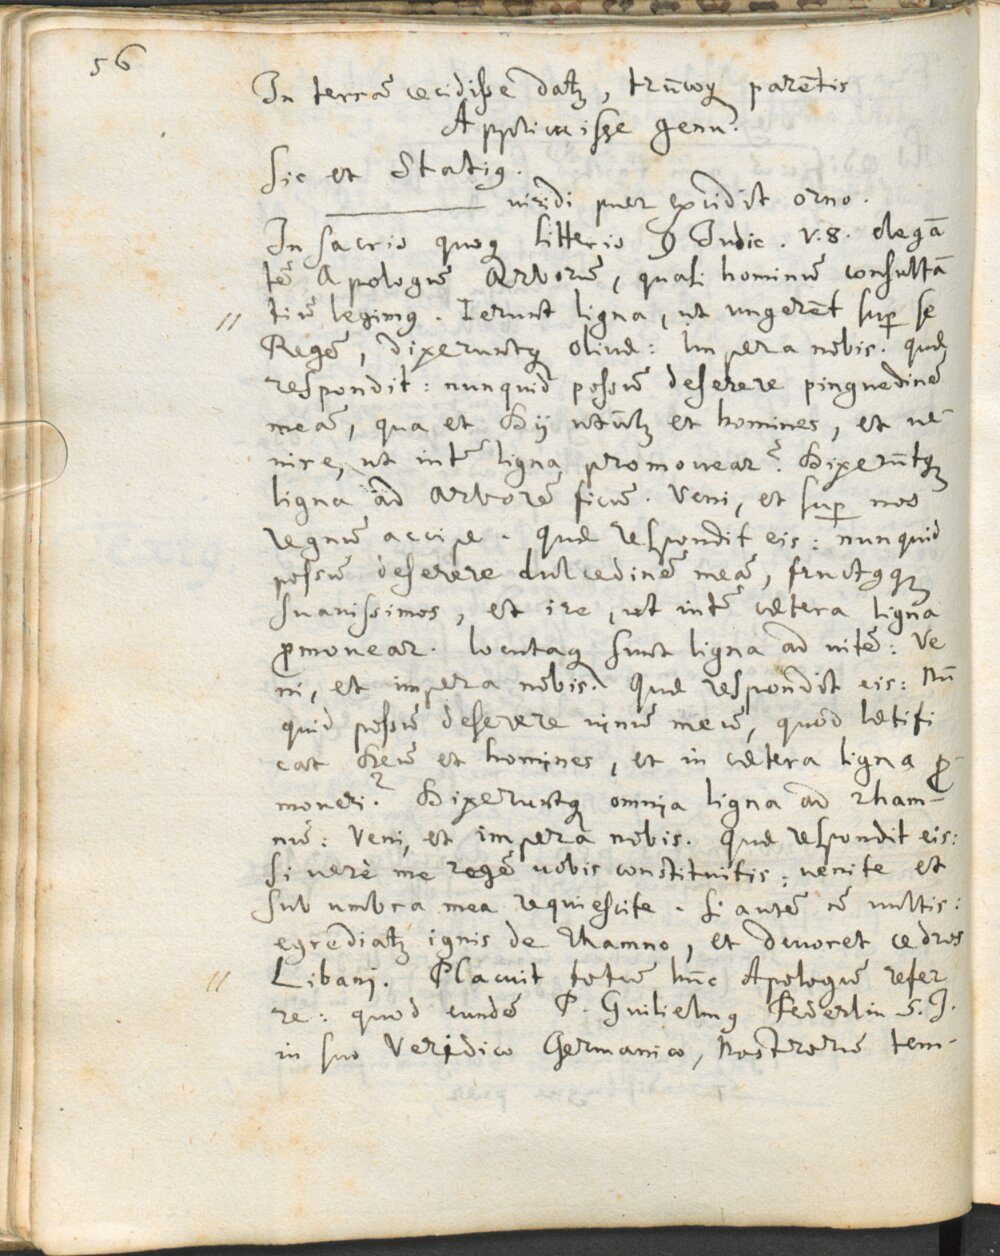 56
In terrā cecidisse datꝫ, trūcoqꝫ parētis
Applicuisse genu.
Sic et Statiꝰ.
viridi puer excidit orno.
In sacris quoqꝫ litteris 9 Judic. v. 8. elegā
tē Apologū Arborū, quasi hominū consultā
// tiū legimꝰ. Ierunt ligna, ut ungerēt suꝑ se
Regē, dixeruntqꝫ olivæ: Impera nobis. quæ
respondit: nunquid possū deserere pinguedinē
meā, qua et Dij utūtꝫ et homines, et ve-
nire, ut intē ligna promovear? Dixerūtqꝫ
ligna ad arborē ficū. Veni, et suꝑ nos
regnū accipe. Quæ respondit eis: nunquid
possū deserere dulcedinē meā, fructꝰqꝫ
suavissimos, et ire, ut intē cætera ligna
ꝓmovear. locutaqꝫ sunt ligna ad vitē: Ve
ni, et impera nobis. Quæ respondit eis: Nū
quid possū deserere vinū meū, quod lætifi
cat Deū et homines, et in cætera ligna ꝓ-
moveri? Dixeruntqꝫ omnia ligna ad rham-
nū: Veni, et impera nobis. Quæ respondit eis:
Si verè me regē vobis constituitis: venite et
sub umbra mea requiescite. Si autē nō vultis:
egrediatꝫ ignis de Rhamno, et devoret cedros
// Libani. Placuit totū hūc Apologū refer
re: quod eundē P. Guilielmꝰ Federlin S. J.
in suo Veridico Germanico, Nostrorū tem-